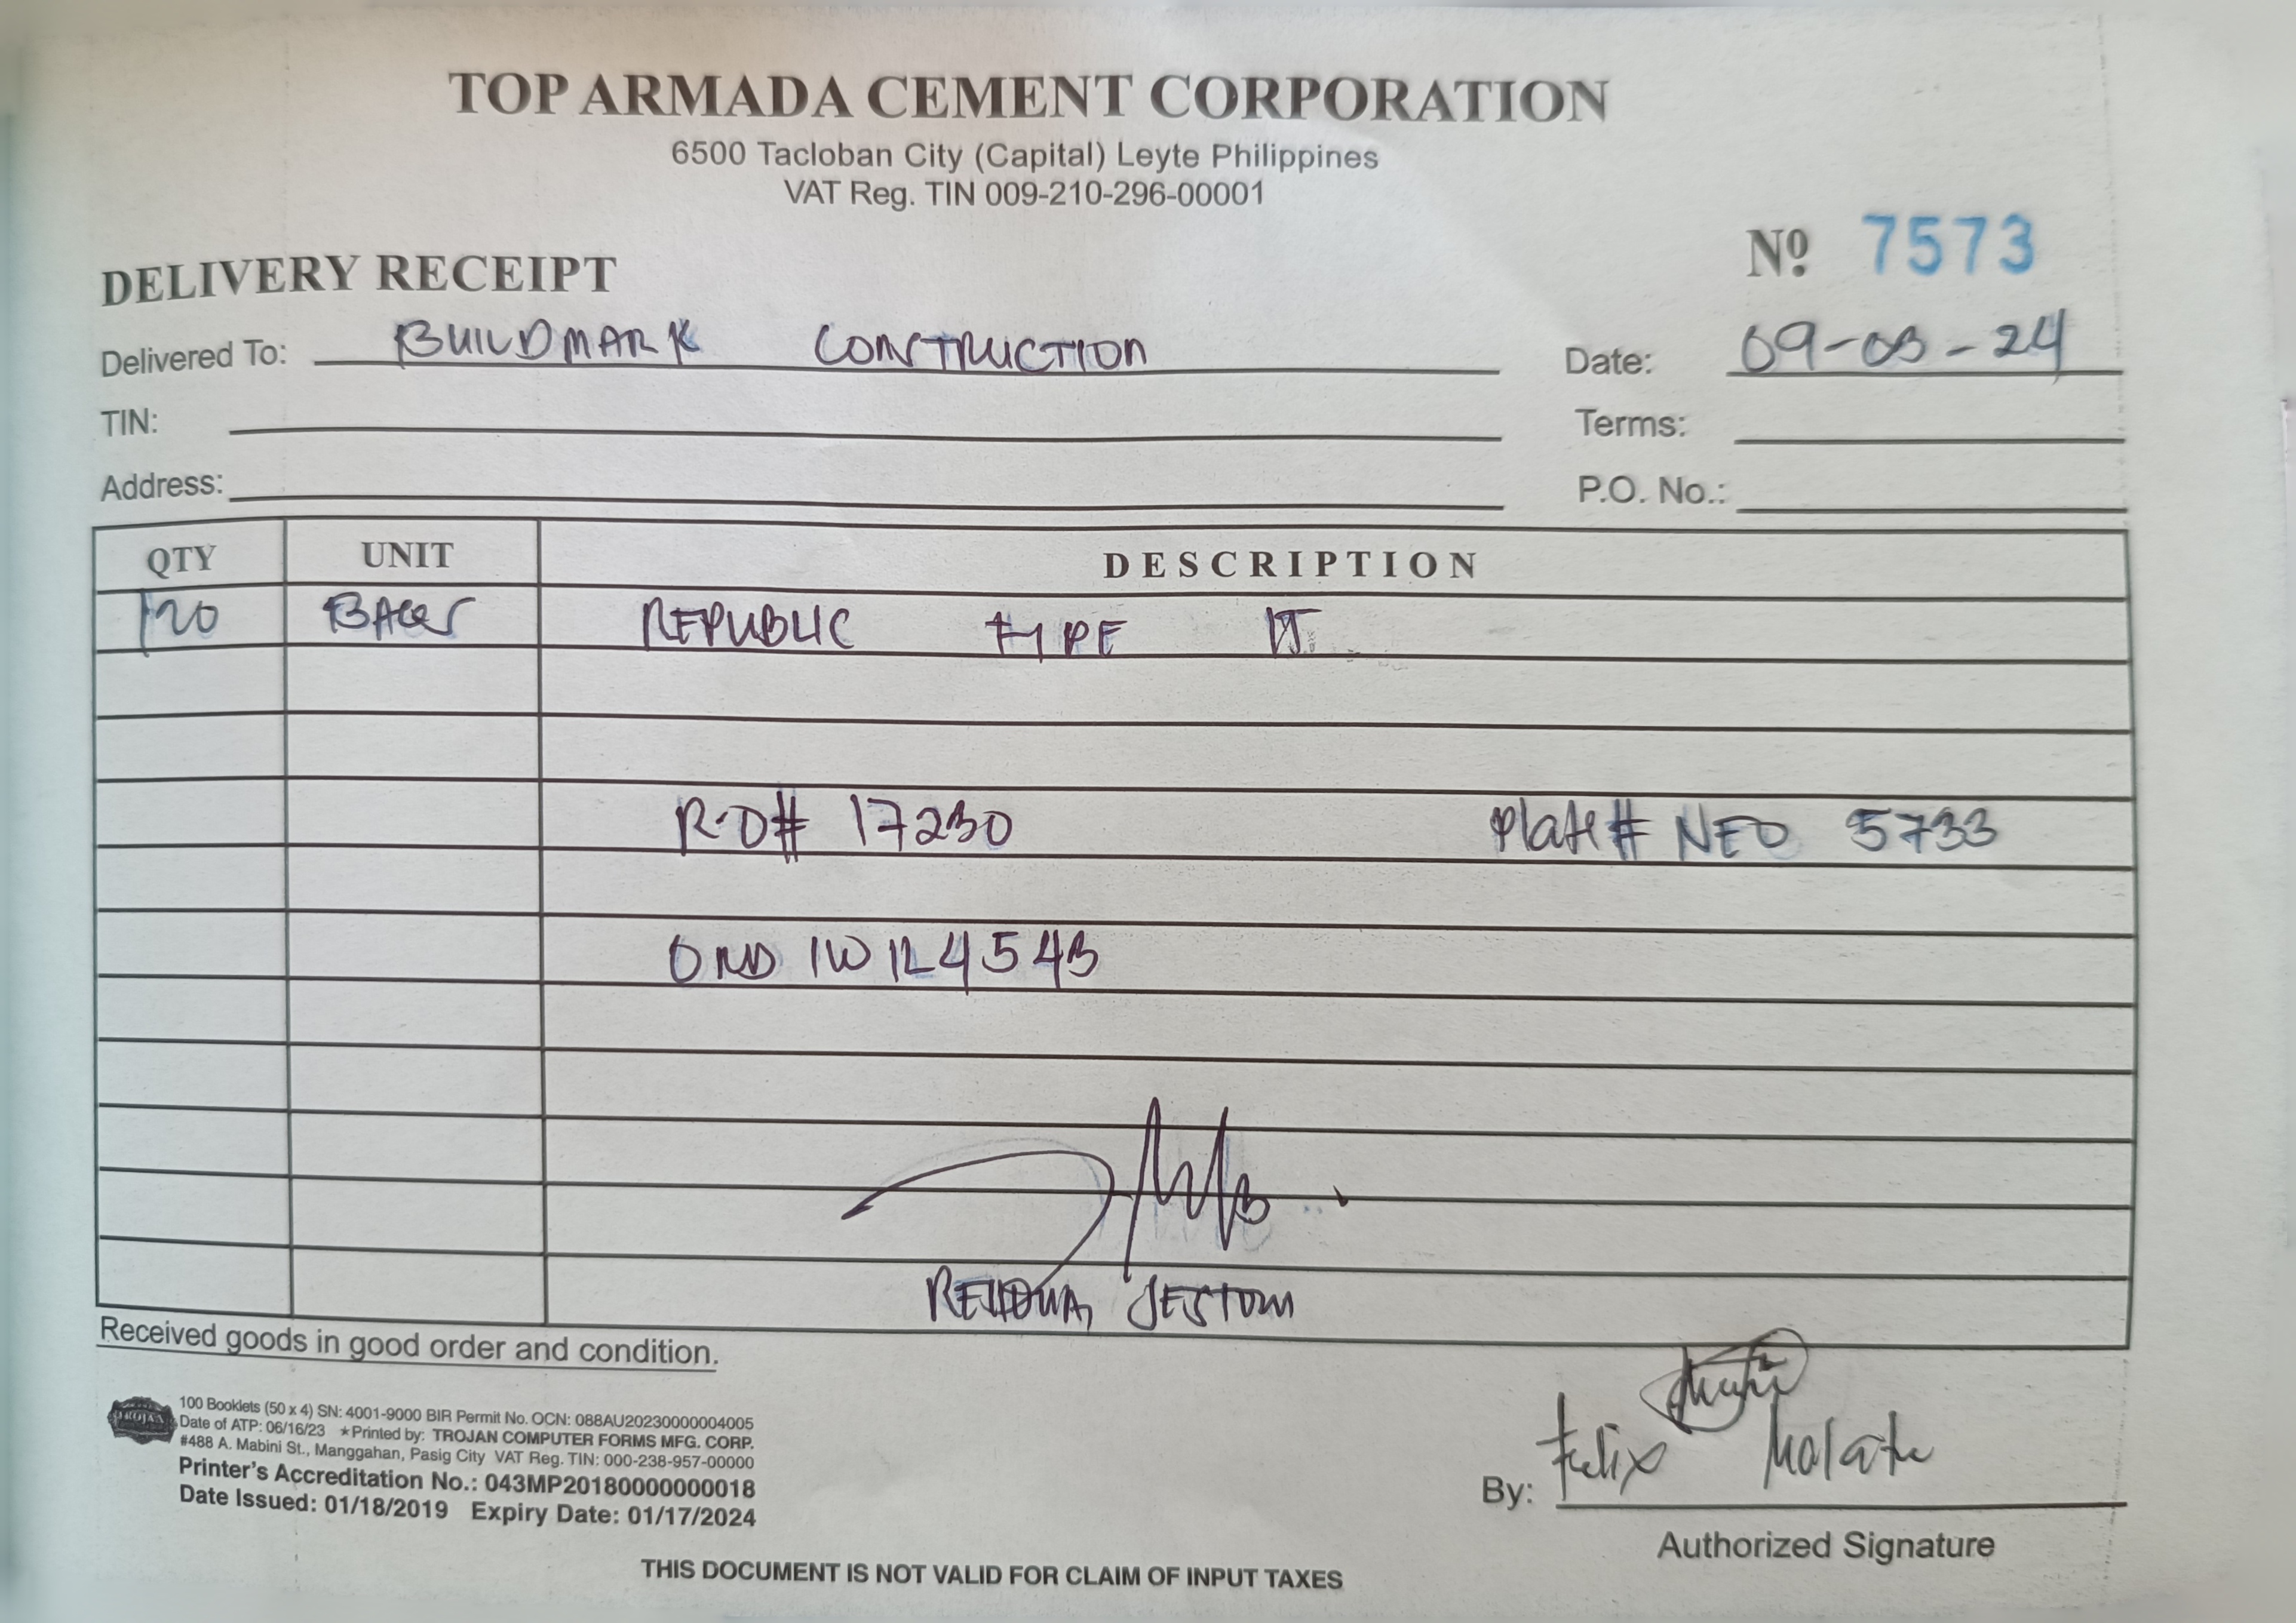 TOP ARMADA CEMENT CORPORATION
6500 Tacloban City (Capital) Leyte Philippines
VAT Reg. TIN 009-210-296-00001
Nº 7573
DELIVERY RECEIPT
Delivered To: BUILDMARK CONSTRUCTION Date: 09-03-24
TIN: Terms:
Address: P.O. No.:
QTY UNIT DESCRIPTION
120 BAGS REPUBLIC TYPE
R.O# 17230 Plate# NEO 5733
JESTOM
Received goods in good order and condition.
TROJAN
100 Booklets (50 x 4) SN: 4001-9000 BIR Permit No. OCN: 088AU20230000004005
Date of ATP: 06/16/23 ★Printed by: TROJAN COMPUTER FORMS MFG. CORP.
#488 A. Mabini St., Manggahan, Pasig City VAT Reg. TIN: 000-238-957-00000
Printer's Accreditation No.: 043MP20180000000018
Date Issued: 01/18/2019 Expiry Date: 01/17/2024
By: Felix Malate
Authorized Signature
THIS DOCUMENT IS NOT VALID FOR CLAIM OF INPUT TAXES